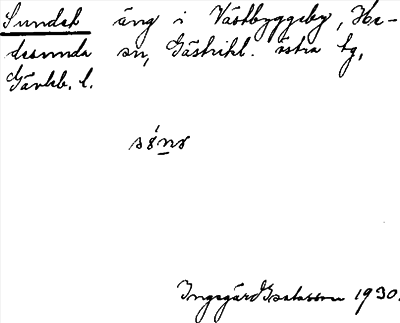 Sundet äng i Västbyggeby, He-
desunda sn, Gästrikl. östra tg,
Gävleb. l.
Ingegärd 1930.